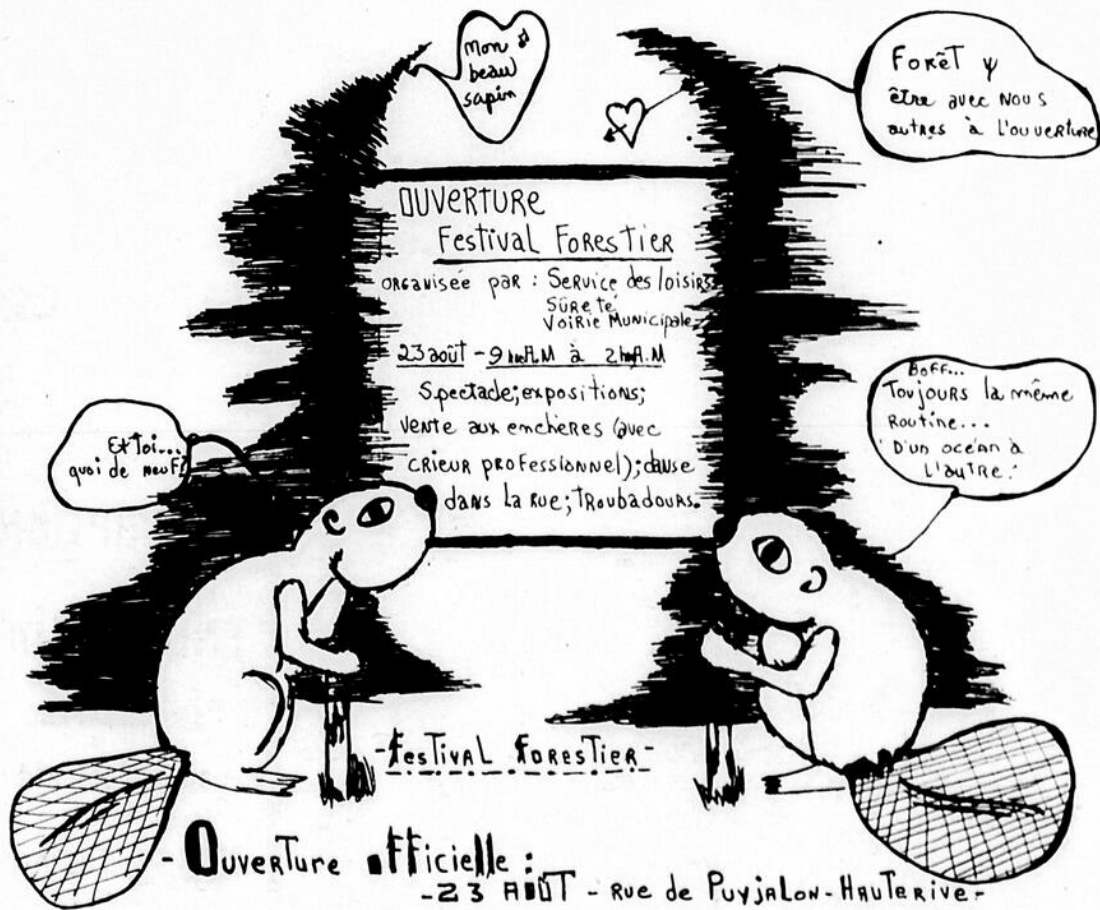 Mon
beau
sapin
Forêt ψ
être avec nous
autres à l'ouverture
Ouverture
Festival Forestier
organisée par : Service des loisirs
Sûreté
Voirie Municipale
23 août - 9 hres A.M à 2 hres A.M
Spectacle; expositions;
vente aux enchères (avec
crieur professionnel); danse
dans la rue; troubadours.
Et toi...
quoi de neuf?
Boff...
Toujours la même
routine...
D'un océan à
l'autre.
- Festival Forestier -
- Ouverture officielle :
- 23 AOÛT - rue de Puyjalon - Hauterive -